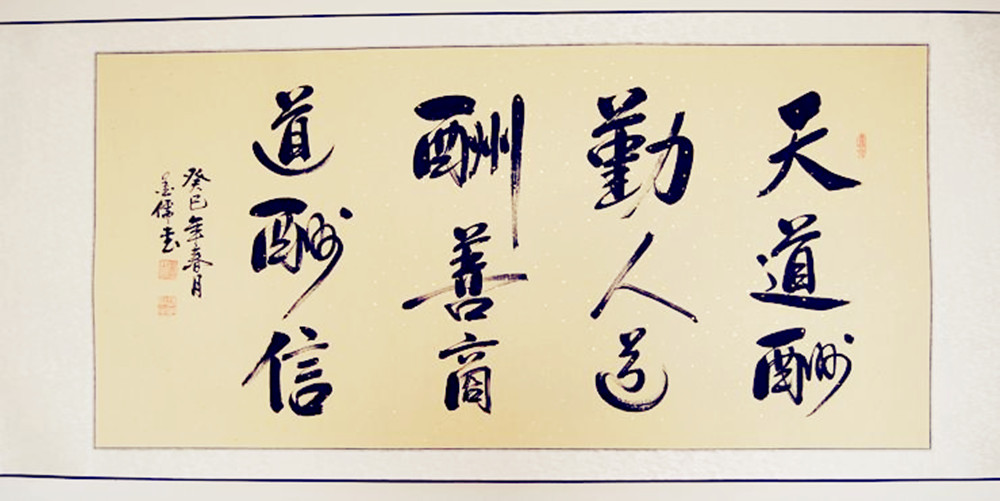 天道酬
勤人道
酬善商
道酬信
癸巳年春月
墨儒书